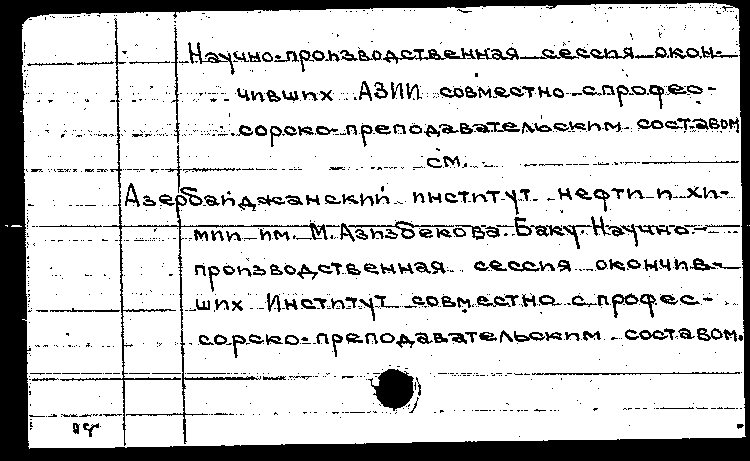 Научно-производственная сессия окон-
чивших АЗИИ совместно с профес-
сорско-преподавательским составом
см.
Азербайджанский институт нефти и хи-
мии им. М. Азизбекова. Баку. Научно-
производственная сессия окончив-
ших Институт совместно с профес-
сорско-преподавательским составом.